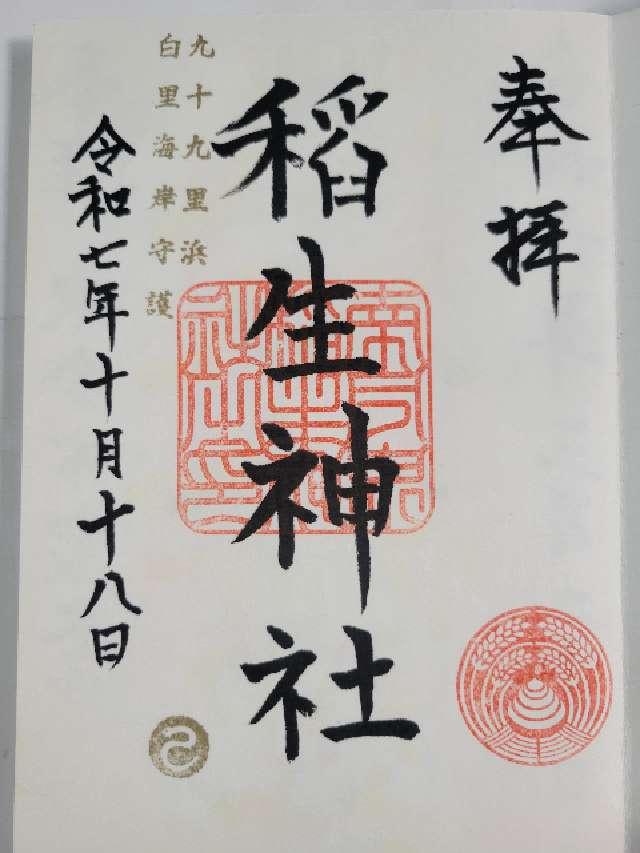 奉拝
稲生神社
九十九里浜
白里海岸守護
令和七年十月十八日